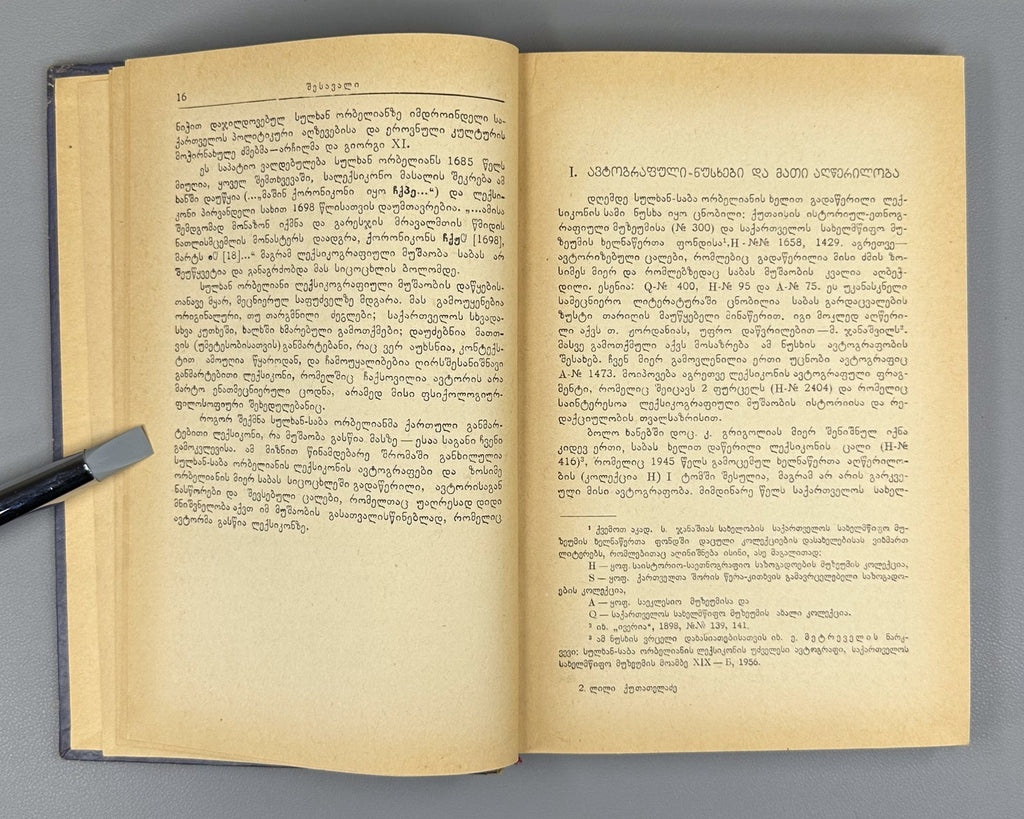 16
შესავალი
ნიჭით დაჯილდოვებულ სულხან ორბელიანზე იმდროინდელი სა-
ქართველოს პოლიტიკური აღზევებისა და ეროვნული კულტურის
მოჭირნახულე ძმებმა — არჩილმა და გიორგი XI.
ეს საპატიო ვალდებულება სულხან ორბელიანს 1685 წელს
მიუღია, ყოველ შემთხვევაში, სალექსიკონო მასალის შეკრება ამ
ხანში დაუწყია (...„მაშინ ქორონიკონი იყო ჩქპე...“) და ლექსი-
კონი პირვანდელი სახით 1698 წლისათვის დაუმთავრებია. „...ამისა
შემდგომად მონაზონ იქმნა და გარესჯის მრავალმთის წმიდის
ნათლისმცემლის მონასტერს დაადგრა, ქორონიკონს [1698],
მარტს [18]...“ მაგრამ ლექსიკოგრაფიული მუშაობა საბას არ
შეუწყვეტია და განაგრძობდა მას სიცოცხლის ბოლომდე.
სულხან ორბელიანი ლექსიკოგრაფიული მუშაობის დაწყების-
თანავე მყარ, მეცნიერულ საფუძველზე მდგარა. მას გამოუყენებია
ორიგინალური, თუ თარგმნილი ძეგლები; საქართველოს სხვადა-
სხვა კუთხეში, ხალხში ხმარებული გამოთქმები; დაუძებნია მათთ-
ვის (უმეტესობისათვის) განმარტებანი, რაც ვერ აუხსნია, კონტექს-
ტით ამოუღია წყაროდან, და ჩამოუყალიბებია ღირსშესანიშნავი
განმარტებითი ლექსიკონი, რომელშიც ჩაქსოვილია ავტორის არა
მარტო ენათმეცნიერული ცოდნა, არამედ მისი ფსიქოლოგიურ-
ფილოსოფიური შეხედულებანიც.
როგორ შექმნა სულხან-საბა ორბელიანმა ქართული განმარ-
ტებითი ლექსიკონი, რა მუშაობა გასწია მასზე — ესაა საგანი ჩვენი
გამოკვლევისა. ამ მიზნით წინამდებარე შრომაში განხილულია
სულხან-საბა ორბელიანის ლექსიკონის ავტოგრაფები და ზოსიმე
ორბელიანის მიერ საბას სიცოცხლეში გადაწერილი, ავტორისაგან
ნასწორები და შევსებული ცალები, რომელთაც უაღრესად დიდი
მნიშვნელობა აქვთ იმ მუშაობის გასათვალისწინებლად, რომელიც
ავტორმა გასწია ლექსიკონზე.
I. ავტოგრაფული-ნუსხები და მათი აღწერილობა
დღემდე სულხან-საბა ორბელიანის ხელით გადაწერილი ლექ-
სიკონის სამი ნუსხა იყო ცნობილი: ქუთაისის ისტორიულ-ეთნოგ-
რაფიული მუზეუმისა (№ 300) და საქართველოს სახელმწიფო მუ-
ზეუმის ხელნაწერთა ფონდისა¹, H - №№ 1658, 1429. აგრეთვე —
ავტორიზებული ცალები, რომლებიც გადაწერილია მისი ძმის ზო-
სიმეს მიერ და რომლებზედაც საბას მუშაობის კვალია აღბეჭ-
დილი. ესენია: Q-№ 400, H-№ 95 და A-№ 75. ეს უკანასკნელი
სამეცნიერო ლიტერატურაში ცნობილია საბას გარდაცვალების
ზუსტი თარიღის მაუწყებელი მინაწერით. იგი მოკლედ აღწერი-
ლი აქვს თ. ჟორდანიას, უფრო დაწვრილებით — მ. ჯანაშვილს².
მასვე გამოთქმული აქვს მოსაზრება ამ ნუსხის ავტოგრაფობის
შესახებ. ჩვენ მიერ გამოვლენილია ერთი უცნობი ავტოგრაფიც
A-№ 1473. მოიპოვება აგრეთვე ლექსიკონის ავტოგრაფული ფრაგ-
მენტი, რომელიც შეიცავს 2 ფურცელს (H-№ 2404) და რომელიც
საინტერესოა ლექსიკოგრაფიული მუშაობის ისტორიისა და რე-
დაქციულობის თვალსაზრისით.
ბოლო ხანებში დოც. კ. გრიგოლიას მიერ შენიშნულ იქნა
კიდევ ერთი, საბას ხელით დაწერილი ლექსიკონის ცალი (H-№
416)³, რომელიც 1945 წელს გამოცემულ ხელნაწერთა აღწერილო-
ბის (კოლექცია H) I ტომში შესულია, მაგრამ არ არის გარკვე-
ული მისი ავტოგრაფობა. მიმდინარე წელს საქართველოს სახელ-
¹ ქვემოთ აკად. ს. ჯანაშიას სახელობის საქართველოს სახელმწიფო მუ-
ზეუმის ხელნაწერთა ფონდში დაცული კოლექციების დასახელებისას ვიხმართ
ლიტერებს, რომლებითაც აღინიშნება ისინი, ასე მაგალითად:
H — ყოფ. საისტორიო-საეთნოგრაფიო საზოგადოების მუზეუმის კოლექცია,
S — ყოფ. ქართველთა შორის წერა-კითხვის გამავრცელებელი საზოგადო-
ების კოლექცია,
A — ყოფ. საეკლესიო მუზეუმისა და
Q — საქართველოს სახელმწიფო მუზეუმის ახალი კოლექცია.
² იხ. „ივერია“, 1898, №№ 139, 141.
³ ამ ნუსხის ვრცელი დახასიათებისათვის იხ. ე. მეტრეველის ნარკ-
ვევი: სულხან-საბა ორბელიანის ლექსიკონის უძველესი ავტოგრაფი, საქართველოს
სახელმწიფო მუზეუმის მოამბე XIX — Б, 1956.
2. ლილი ქუთათელაძე